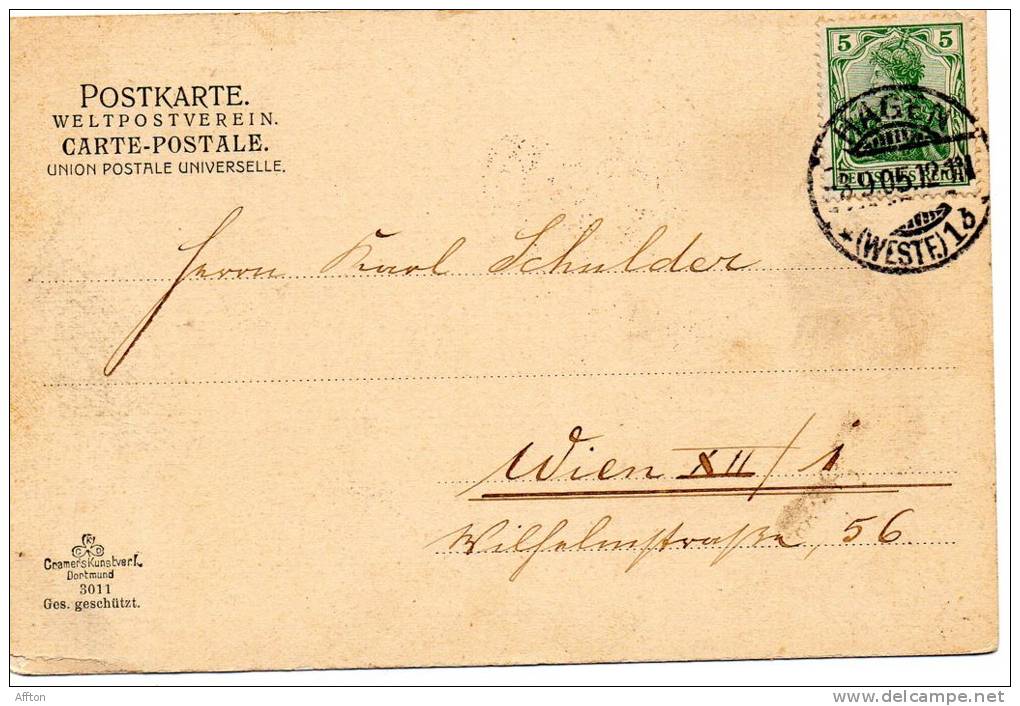 POSTKARTE.
WELTPOSTVEREIN.
CARTE-POSTALE.
UNION POSTALE UNIVERSELLE.
5 5
DEUTSCHES REICH
HAGEN
9.05.12
(WESTF.) 1d
Herrn Karl Schulder
Wien XII/1
Wilhelmstraße, 56.
CKCD
Cramers Kunstverl.
Dortmund
3011
Ges. geschützt.
Afton
www.delcampe.net